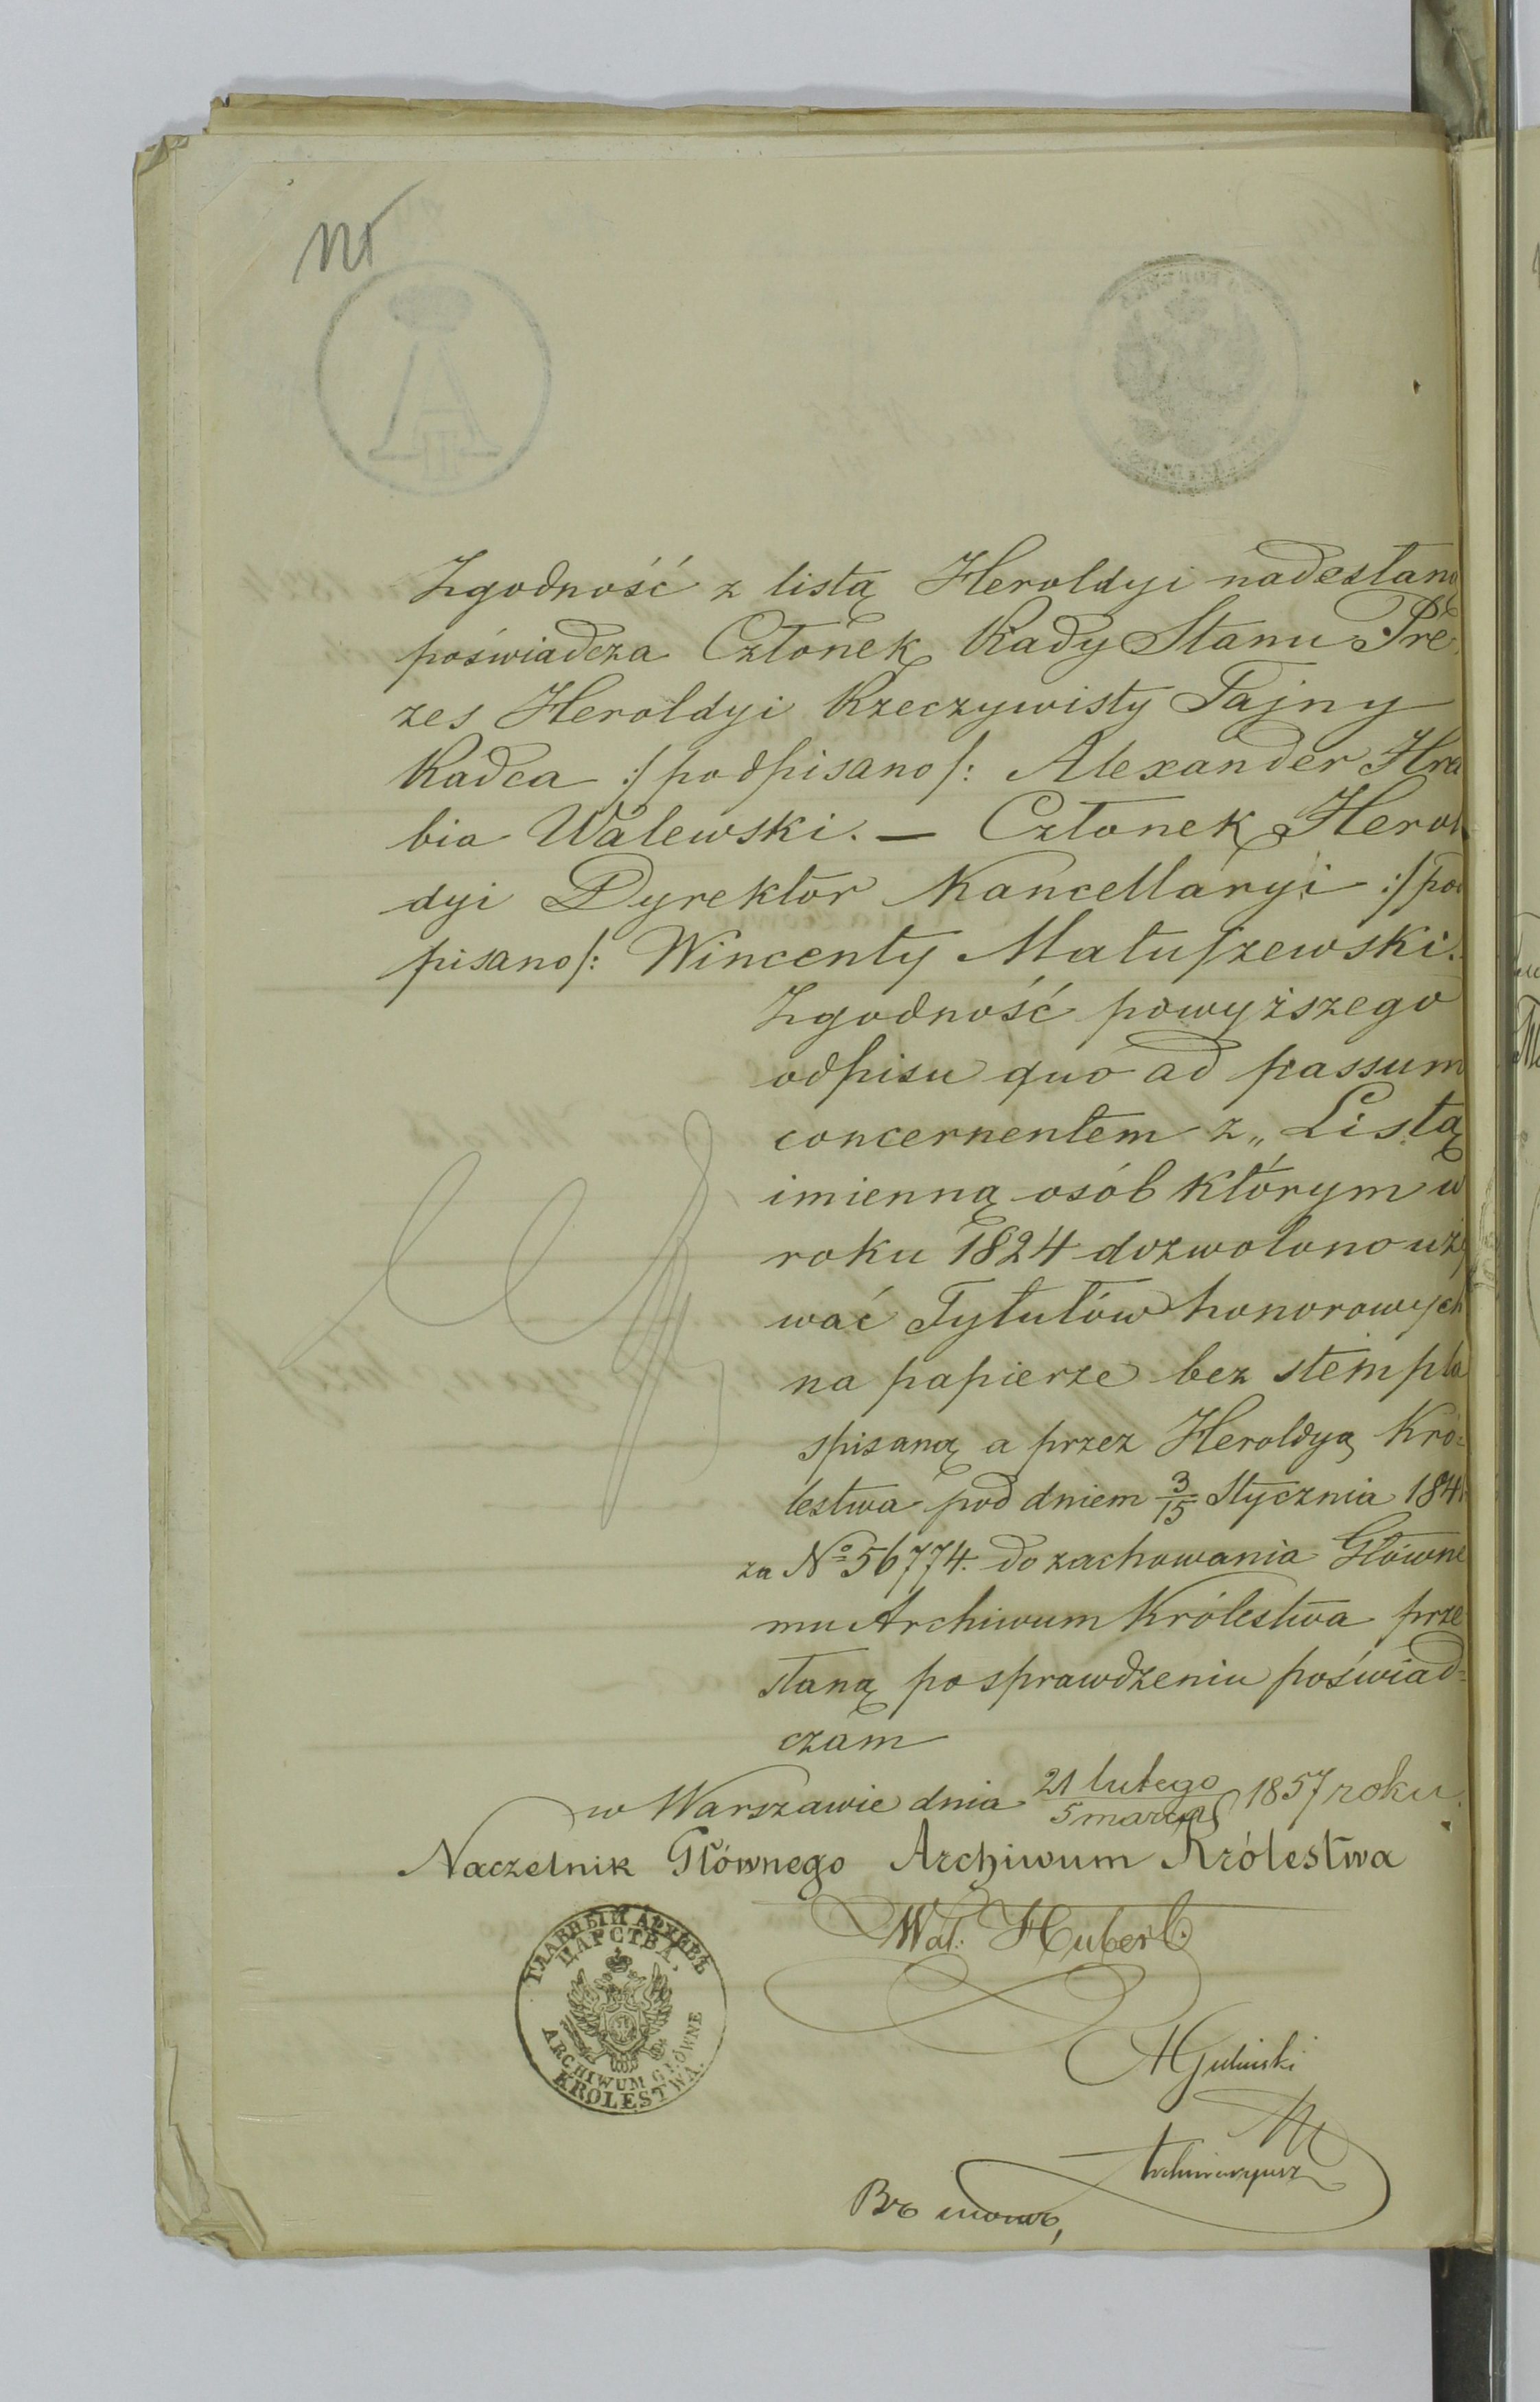 Zgodność z listą Heroldyi nadesłaną
poświadcza Członek Rady Stanu Pre-
zes Heroldyi Rzeczywisty Tajny
Radca :/podpisano/: Alexander Hra
bia Walewski. — Członek Herol
dyi Dyrektor Kancellaryi :/pod
pisano/: Wincenty Matuszewski.
Zgodność powyższego
odpisu quo ad passum
concernentem z „Listą
imienną osób którym w
roku 1824 dozwolono uży
wać Tytułów honorowych
na papierze bez stempla
spisaną a przez Heroldyą Kró-
lestwa pod dniem 3/15 Stycznia 184
za No 56774. do zachowania Główne
mu Archiwum Królestwa prze
słaną po sprawdzeniu poświad-
czam
w Warszawie dnia 21 lutego / 5 marca 1857 roku.
Naczelnik Głównego Archiwum Królestwa
Wal. Hubert.
ГЛАВНЫЙ АРХИВЪ
ЦАРСТВА,
ARCHIWUM GŁÓWNE
KRÓLESTWA.
Archiwaryusz